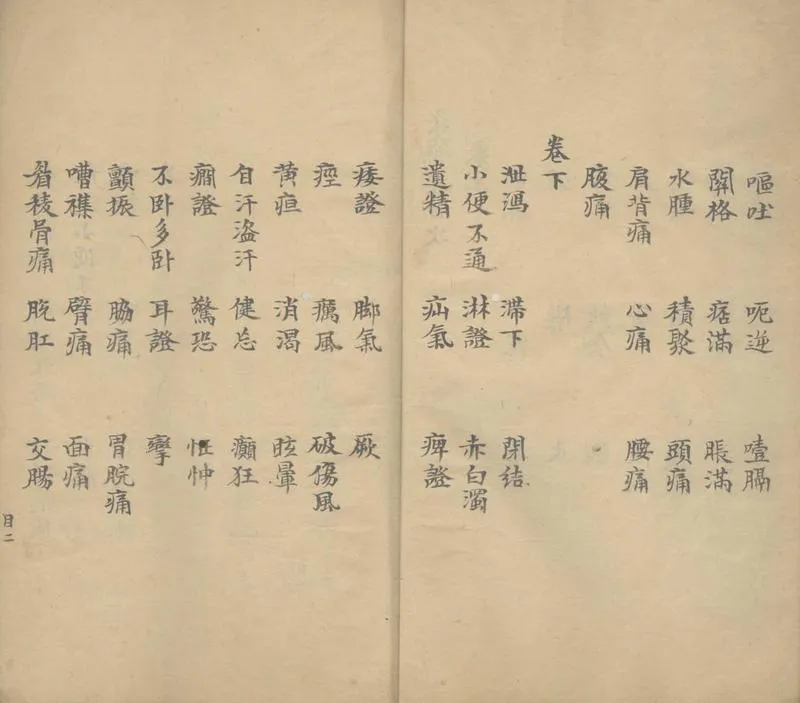 嘔吐 呃逆 噎膈
關格 痞滿 脹滿
水腫 積聚 頭痛
肩背痛 心痛 腰痛
腹痛
卷下
泄瀉 滯下 閉結
小便不通 淋證 赤白濁
遺精 疝氣 痺證
痿證 脚氣 厥
痙 癘風 破傷風
黃疸 消渴 眩暈
自汗盜汗 健忘 癲狂
癇證 驚恐 怔忡
不卧多卧 耳證 攣
顫振 脇痛 胃脘痛
嘈雜 臂痛 面痛
眉稜骨痛 脫肛 交腸
目二